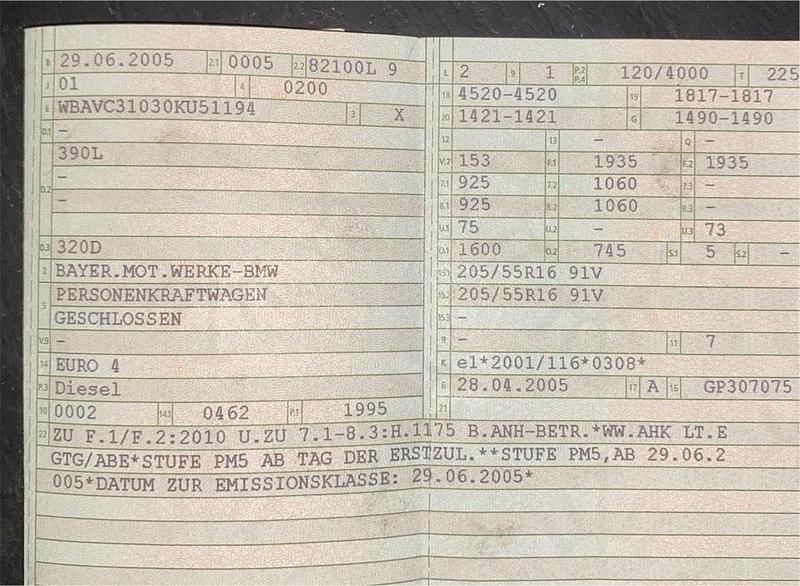 B 29.06.2005 2.1 0005 2.2 82100L 9
J 01 4 0200
E WBAVC31030KU51194 3 X
D.1 -
390L
D.2 -
-
D.3 320D
2 BAYER.MOT.WERKE-BMW
5 PERSONENKRAFTWAGEN
GESCHLOSSEN
V.9 -
14 EURO 4
P.3 Diesel
10 0002 14.1 0462 P.1 1995
L 2 9 1 P.2 P.4 120/4000 T 225
18 4520-4520 19 1817-1817
20 1421-1421 G 1490-1490
12 13 - Q -
V.7 153 F.1 1935 F.2 1935
7.1 925 7.2 1060 7.3 -
8.1 925 8.2 1060 8.3 -
U.1 75 U.2 - U.3 73
O.1 1600 O.2 745 S.1 5 S.2 -
15.1 205/55R16 91V
15.2 205/55R16 91V
15.3 -
R - 11 7
K e1*2001/116*0308*
6 28.04.2005 17 A 16 GP307075
21
22 ZU F.1/F.2:2010 U.ZU 7.1-8.3:H.1175 B.ANH-BETR.*WW.AHK LT.E
GTG/ABE*STUFE PM5 AB TAG DER ERSTZUL.**STUFE PM5,AB 29.06.2
005*DATUM ZUR EMISSIONSKLASSE: 29.06.2005*